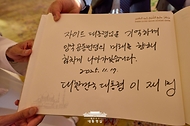 자이드 대통령님을 기억하며
양국 공동번영의 미래를 향해
함께 나아가겠습니다.
2025. 11. 17.
대한민국 대통령 이재명